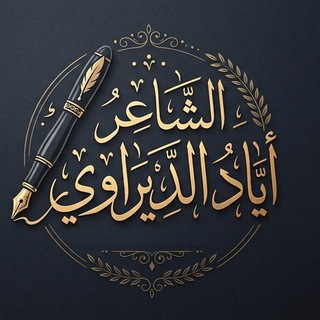 الشَّاعِرُ
أيَّادُ الدِّيَراوي